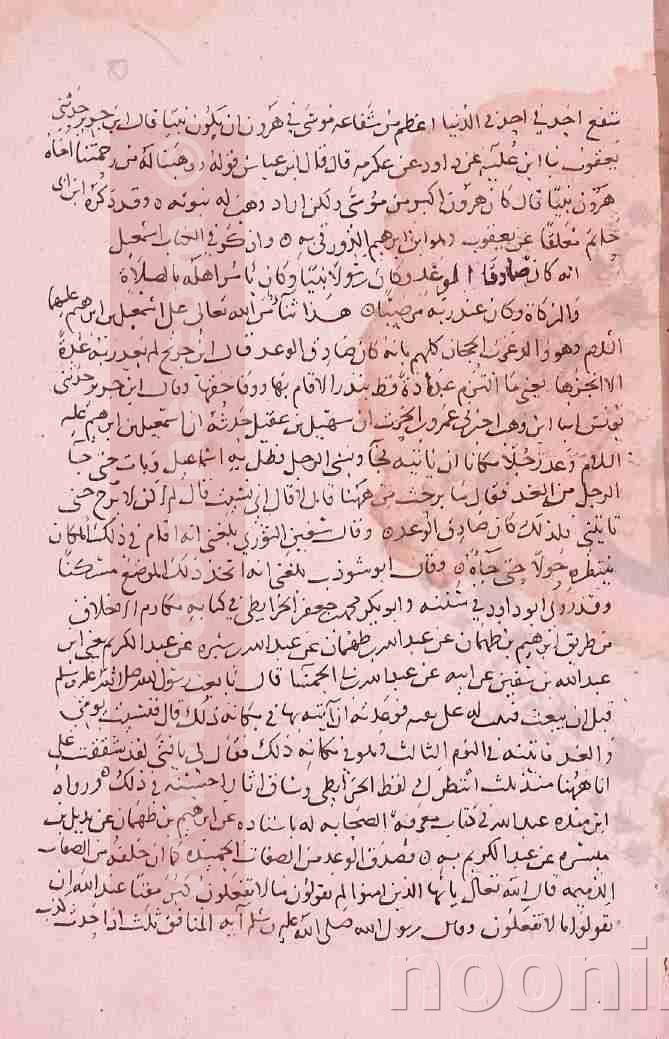 شفع احد في احد في الدنيا اعظم من شفاعة موسى في هرون ان يكون نبيا قال ابن جرير حدثنى
يعقوب نا ابن علية عن داود عن عكرمه قال قال ابن عباس قوله ووهبنا له من رحمتنا اخاه
هرون نبيا قال كان هرون اكبر من موسى ولكن اراد وهب له نبوته وقد ذكره ابن ابى
حاتم معلقا عن يعقوب وهو ابن ابرهيم الدورقي به واذكر في الكتاب اسمعيل
انه كان صادق الوعد وكان رسولا نبيا وكان يأمر اهله بالصلاة
والزكاة وكان عند ربه مرضيا هذا ثنأ من الله تعالى على اسمعيل بن ابرهيم عليهما
السلام وهو والد عرب الحجاز كلهم بانه كان صادق الوعد قال ابن جريج لم يعد ربه عدة
الا انجزها يعني ما التزم عبادة قط بنذر الا قام بها ووفا حقها وقال ابن جرير حدثنى
يونس انبا ابن وهب اخبرني عمرو بن الحرث ان سهيل بن عقيل حدثه ان اسمعيل بن ابرهيم عليه
السلام وعد رجلا مكانا ان ياتيه فجآ ونسى الرجل فظل به اسماعيل وبات حتى جآ
الرجل من الغد فقال ما برحت من ههنا قال لا قال اني نسيت قال لم اكن لابرح حتى
تاتيني فلذلك كان صادق الوعد وقال سفين الثوري بلغني انه اقام في ذلك المكان
ينتظره حولا حتى جآه وقال ابن شوذب بلغني انه اتخذ ذلك الموضع مسكنا
وقد روى ابو داود في سننه وابو بكر محمد بن جعفر الخرايطي في كتابه مكارم الاخلاق
من طريق ابرهيم بن طهمان عن عبد الله بن ميسره عن عبد الكريم يعني ابن
عبد الله بن سفين عن ابيه عن عبد الله بن ابي الحمسآ قال بايعت رسول الله صلى الله عليه وسلم
قبل ان يبعث فبقيت له علي بقيه فوعدته ان آتيه بها في مكانه ذلك قال فنسيت يومي
والغد فاتيته في اليوم الثالث وهو في مكانه ذلك فقال لي يا فتى لقد شققت علي
انا ههنا منذ ثلث انتظرك لفظ الخرايطي وساق اثارا حسنة في ذلك ورواه
ابن منده عبد الله في كتاب معرفة الصحابه له باسناده عن ابرهيم بن طهمان عن بديل بن
ميسره عن عبد الكريم به فصدق الوعد من الصفات الحميده كما ان خلفه من الصفات
الذميمه قال الله تعالى يا ايها الذين امنوا لم تقولون ما لا تفعلون كبر مقتا عند الله ان
تقولوا ما لا تفعلون وقال رسول الله صلى الله عليه وسلم آية المنافق ثلث اذا حدث كذب
nooni